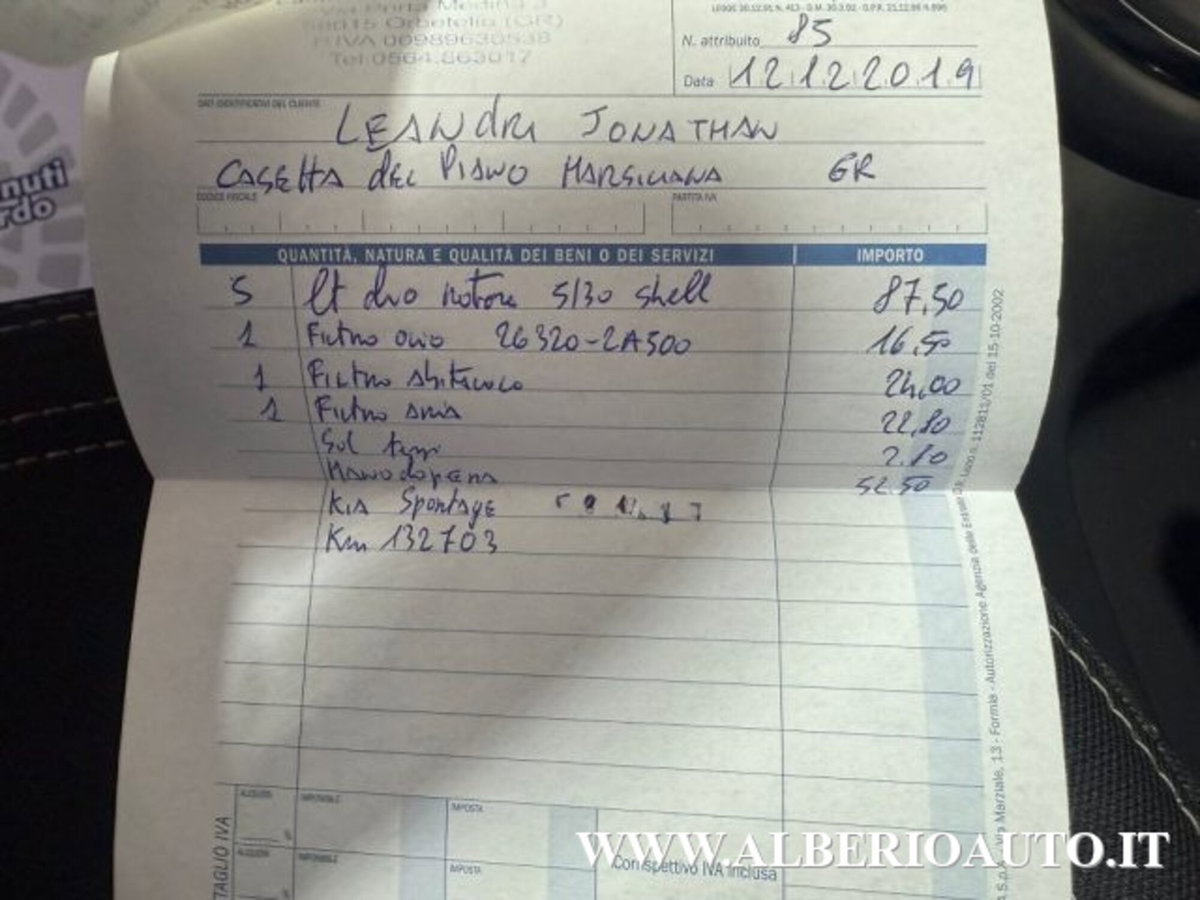 58015 Orbetello (GR)
P.IVA 00989630538
Tel 0564.863017
LEGGE 30.12.91, N. 413 - D.M. 30.3.92 - D.P.R. 21.12.96 N.696
N. attribuito 85
Data 12 12 2019
DATI IDENTIFICATIVI DEL CLIENTE
LEANDRI JONATHAN
CASETTA DEL PIANO MARSILIANA GR
CODICE FISCALE PARTITA IVA
nuti
rdo
QUANTITÀ, NATURA E QUALITÀ DEI BENI O DEI SERVIZI IMPORTO
5 lt olio motore 5/30 shell 87,50
1 Filtro olio 26320-2A500 16,50
1 Filtro abitacolo 24,00
1 Filtro aria 22,80
2.10
Manodopera 52.50
KIA Sportage
Km 132703
Via Marziale, 13 - Formia - Autorizzazione Agenzia delle Entrate
112811/01 del 15-10-2002
TAGLIO IVA
ALIQUOTA IMPONIBILE IMPOSTA
%
ALIQUOTA IMPONIBILE IMPOSTA
%
Corrispettivo IVA inclusa
WWW.ALBERIOAUTO.IT